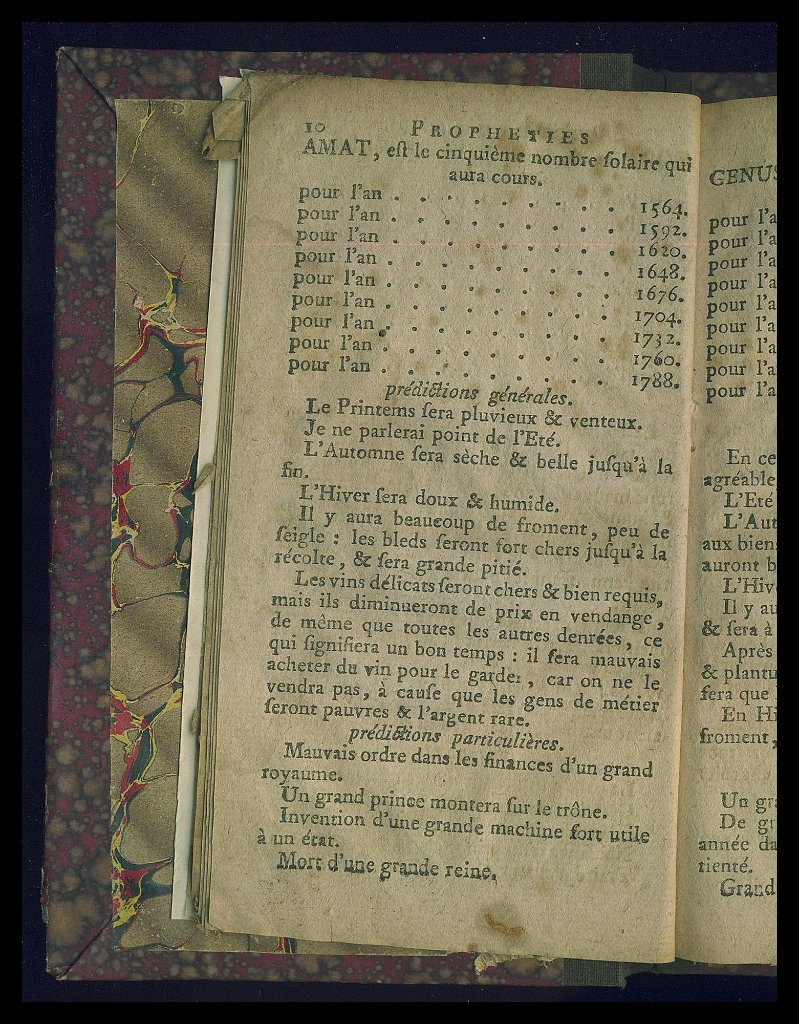 10 PROPHETIES
AMAT, eſt le cinquième nombre ſolaire qui
aura cours.
pour l'an . . . . . . . . . 1564.
pour l'an . . . . . . . . . 1592.
pour l'an . . . . . . . . . 1620.
pour l'an . . . . . . . . . 1648.
pour l'an . . . . . . . . . 1676.
pour l'an . . . . . . . . . 1704.
pour l'an . . . . . . . . . 1732.
pour l'an . . . . . . . . . 1760.
pour l'an . . . . . . . . . 1788.
prédictions générales.
Le Printems ſera pluvieux & venteux.
Je ne parlerai point de l'Eté.
L'Automne ſera sèche & belle juſqu'à la
fin.
L'Hiver ſera doux & humide.
Il y aura beaucoup de froment, peu de
ſeigle : les bleds ſeront fort chers juſqu'à la
récolte, & ſera grande pitié.
Les vins délicats ſeront chers & bien requis,
mais ils diminueront de prix en vendange,
de même que toutes les autres denrées, ce
qui ſignifiera un bon temps : il ſera mauvais
acheter du vin pour le garder, car on ne le
vendra pas, à cauſe que les gens de métier
ſeront pauvres & l'argent rare.
prédictions particulières.
Mauvais ordre dans les finances d'un grand
royaume.
Un grand prince montera ſur le trône.
Invention d'une grande machine fort utile
à un état.
Mort d'une grande reine.
GENUS
pour l'a
pour l'a
pour l'a
pour l'a
pour l'a
pour l'a
pour l'a
pour l'a
pour l'a
En ce
agréable
L'Eté
L'Aut
aux bien
auront b
L'Hiv
Il y au
& ſera à
Après
& plantu
ſera que
En Hi
froment,
Un gra
De gr
année da
tienté.
Grand